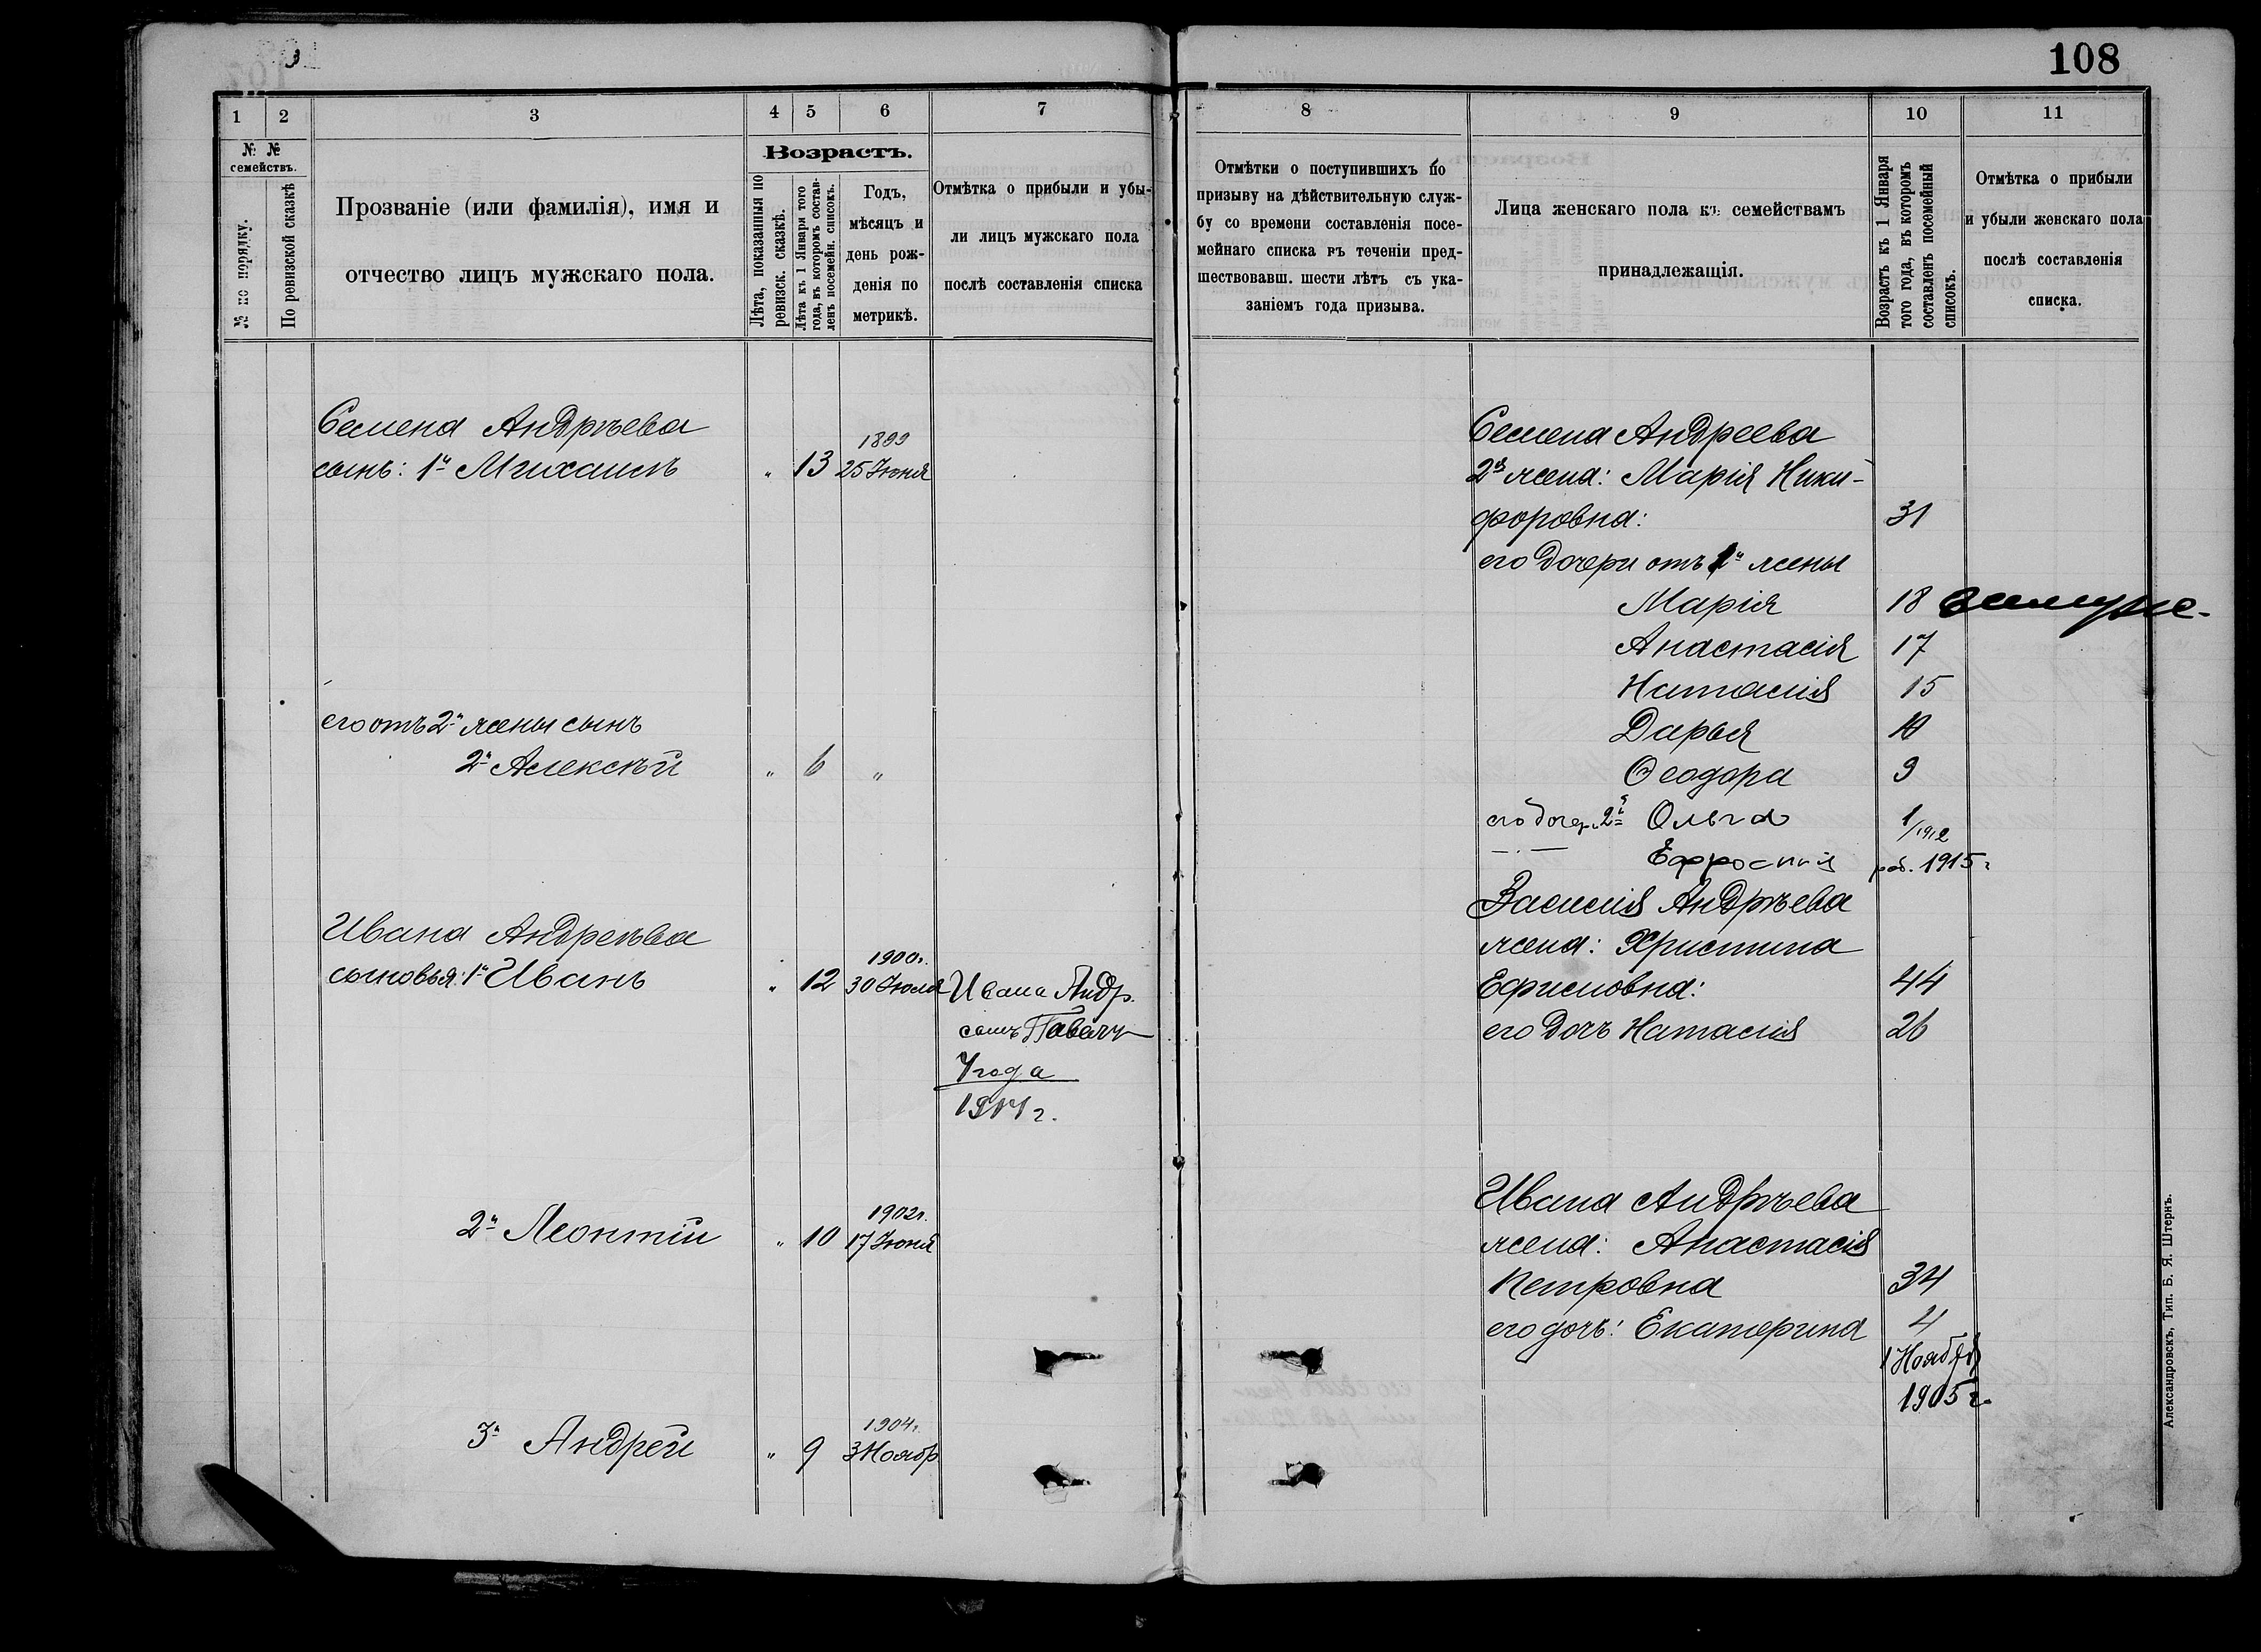 108
1
2
3
4
5
6
7
№ №
семействъ.
№ по порядку.
По ревизской сказкѣ
Прозваніе (или фамилія), имя и
отчество лицъ мужскаго пола.
Возрастъ.
Лѣта, показанныя по
ревизск. сказкѣ.
Лѣта къ 1 Января того
года, въ которомъ состав-
ленъ посемейн. списокъ.
Годъ,
мѣсяцъ и
день рож-
денія по
метрикѣ.
Отмѣтка о прибыли и убы-
ли лицъ мужскаго пола
послѣ составленія списка
Семена Андрѣева
1899
сынъ: 1й Михаилъ " 13 25 Іюня
его отъ 2й жены сынъ
2й Алексѣй " 6 "
Ивана Андреѣва
1900г.
сыновья: 1й Иванъ " 12 30 Іюля
Ивана Андр.
сынъ Павелъ
года
1902г.
2й Леонтій " 10 17 Іюня
1904г.
3й Андрей " 9 3 Ноябр
8
9
10
11
Отмѣтки о поступившихъ по
призыву на дѣйствительную служ-
бу со времени составленія посе-
мейнаго списка въ теченіи пред-
шествовавш. шести лѣтъ съ ука-
заніемъ года призыва.
Лица женскаго пола къ семействамъ
принадлежащія.
Возрастъ къ 1 Января
того года, въ которомъ
составленъ посемейный
списокъ.
Отмѣтка о прибыли
и убыли женскаго пола
послѣ составленія
списка.
Семена Андреева
2я жена: Марія Ники-
форовна: 31
его дочери отъ 1й жены
Марія 18 замуже-
Анастасія 17
Наталія 15
Дарья 10
Ѳеодора 9
его дочер. 2й Ольга 1/1912
Ефросинія род. 1915г
Василія Андрѣева
жена: Христина
Ефимовна: 44
его дочь Наталія 26
Ивана Андрѣева
жена: Анастасія
Петровна 34
его дочь: Екатерина 4
1 Ноября
1905г.
Александровскъ, Тип. Б. Я. Штернъ.